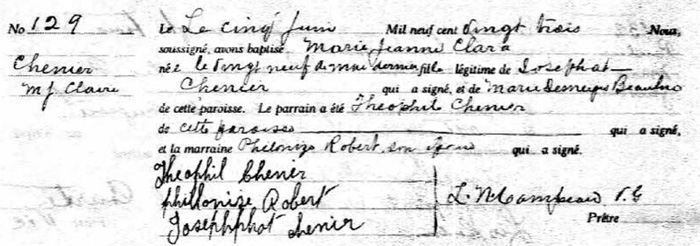 No 129
Chenier
Mj Claire
Le Le cinq Juin Mil neuf cent vingt trois Nous,
soussigné, avons baptisé Marie Jeanne Clara
née le vingt neuf de mai dernier fille légitime de Josephat
Chenier qui a signé, et de Marie
de cette paroisse. Le parrain a été Théophil Chenier
de cette paroisse qui a signé,
et la marraine Philonize Robert, son qui a signé.
Theophil Chenir
phillonize Robert
Josephphat Chenir
L. N. Campeau P. G
Prêtre